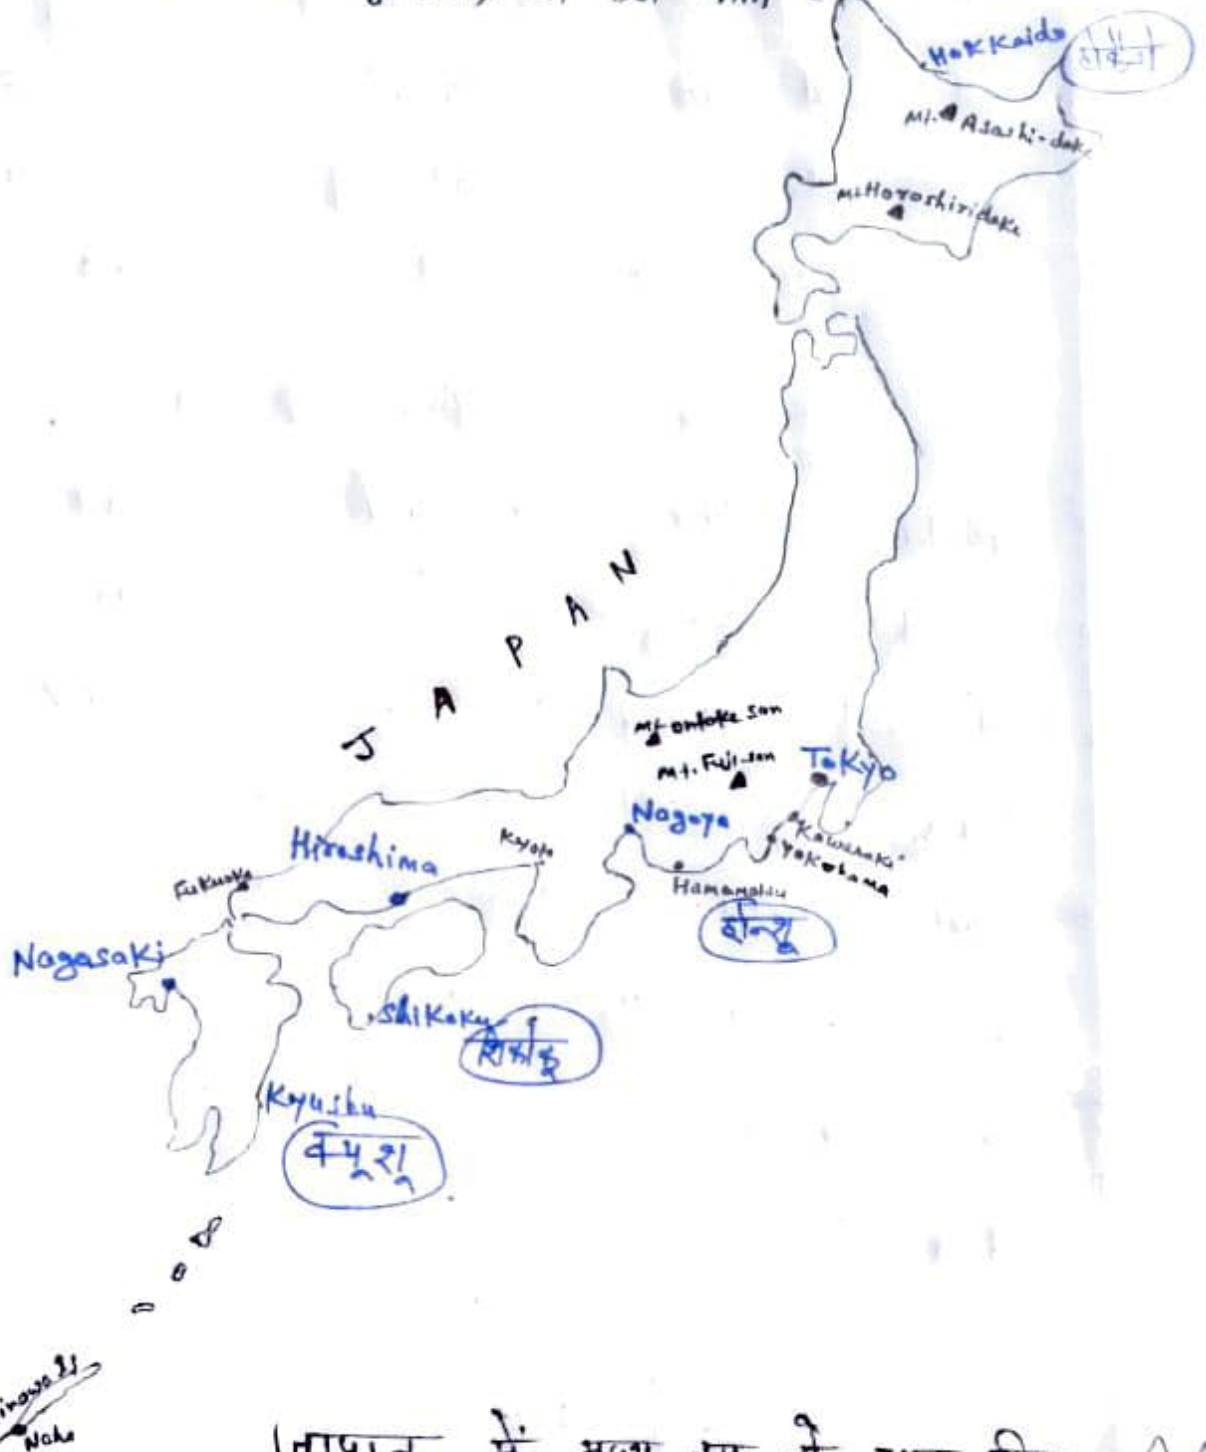 Hokkaido
Mt. Asashi-dak
Mt. Horoshiridake
J A P A N
Mt ontake san
Mt. Fuji-san
Tokyo
Nagoya
Kawasaki
Yokohama
Hamamatsu
होन्शू
Kyoto
Hiroshima
Fukuoka
Nagasaki
Shikoku
शिकोकू
Kyushu
क्यूशू
Naha
में